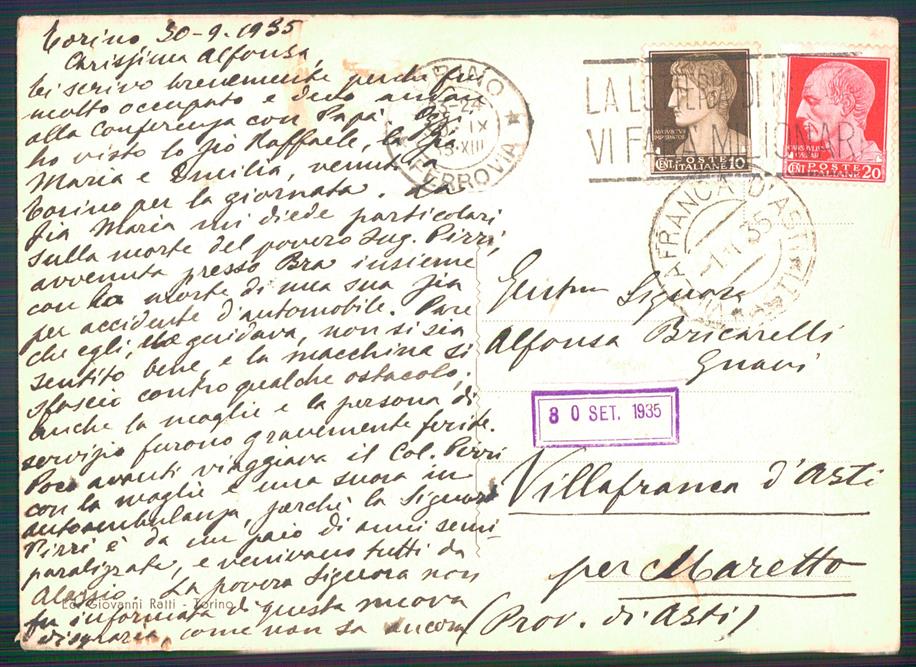 Torino 30-9-1935
Carissima Alfonsa,
ti scrivo brevemente perchè fui
molto occupato e devo andare
alla Conferenza con Papà. Oggi
ho visto lo Zio Raffaele, la Zia
Maria e Emilia, venuti a
Torino per la giornata. La
Zia Maria mi diede particolari
sulla morte del povero Ing. Pirri,
avvenuta presso Bra insieme
con la morte di una sua zia
per accidente d'automobile. Pare
che egli, che guidava, non si sia
sentito bene, e la macchina si
sfasciò contro qualche ostacolo;
anche la moglie e la persona di
servizio furono gravemente ferite.
Poco avanti viaggiava il Col. Pirri
con la moglie e una suora in
autoambulanza, perchè la Signora
Pirri è da un paio di anni semi-
paralizzata, e venivano tutti da
Alassio. La povera Signora non
fu informata di questa nuova
disgrazia come non sa ancora
Ed. Giovanni Ratti - Torino
TORINO
FERROVIA
IX
XIII
LA LOTTERIA DI
VI FARÀ MILIONARI
CENT POSTE ITALIANE 10
CENT POSTE ITALIANE 20
VILLAFRANCA D'ASTI
35
Gent.ma Signora
Alfonsa Bricarelli
Gnavi
30 SET. 1935
Villafranca d'Asti
per Maretto
(Prov. di Asti)